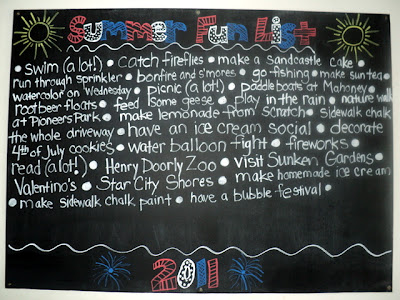 Summer Fun List
• swim (a lot!) • catch fireflies • make a sandcastle cake •
run through sprinkler • bonfire and s'mores • go fishing • make sun tea •
watercolor on Wednesday • picnic (a lot!) • paddle boats at Mahoney •
root beer floats • feed some geese • play in the rain • nature walk
at Pioneers Park • make lemonade from scratch • sidewalk chalk
the whole driveway • have an ice cream social • decorate
4th of July cookies • water balloon fight • fireworks •
read (a lot!) • Henry Doorly Zoo • visit Sunken Gardens •
Valentino's • Star City Shores • make homemade ice cream
• make sidewalk chalk paint • have a bubble festival •
2011